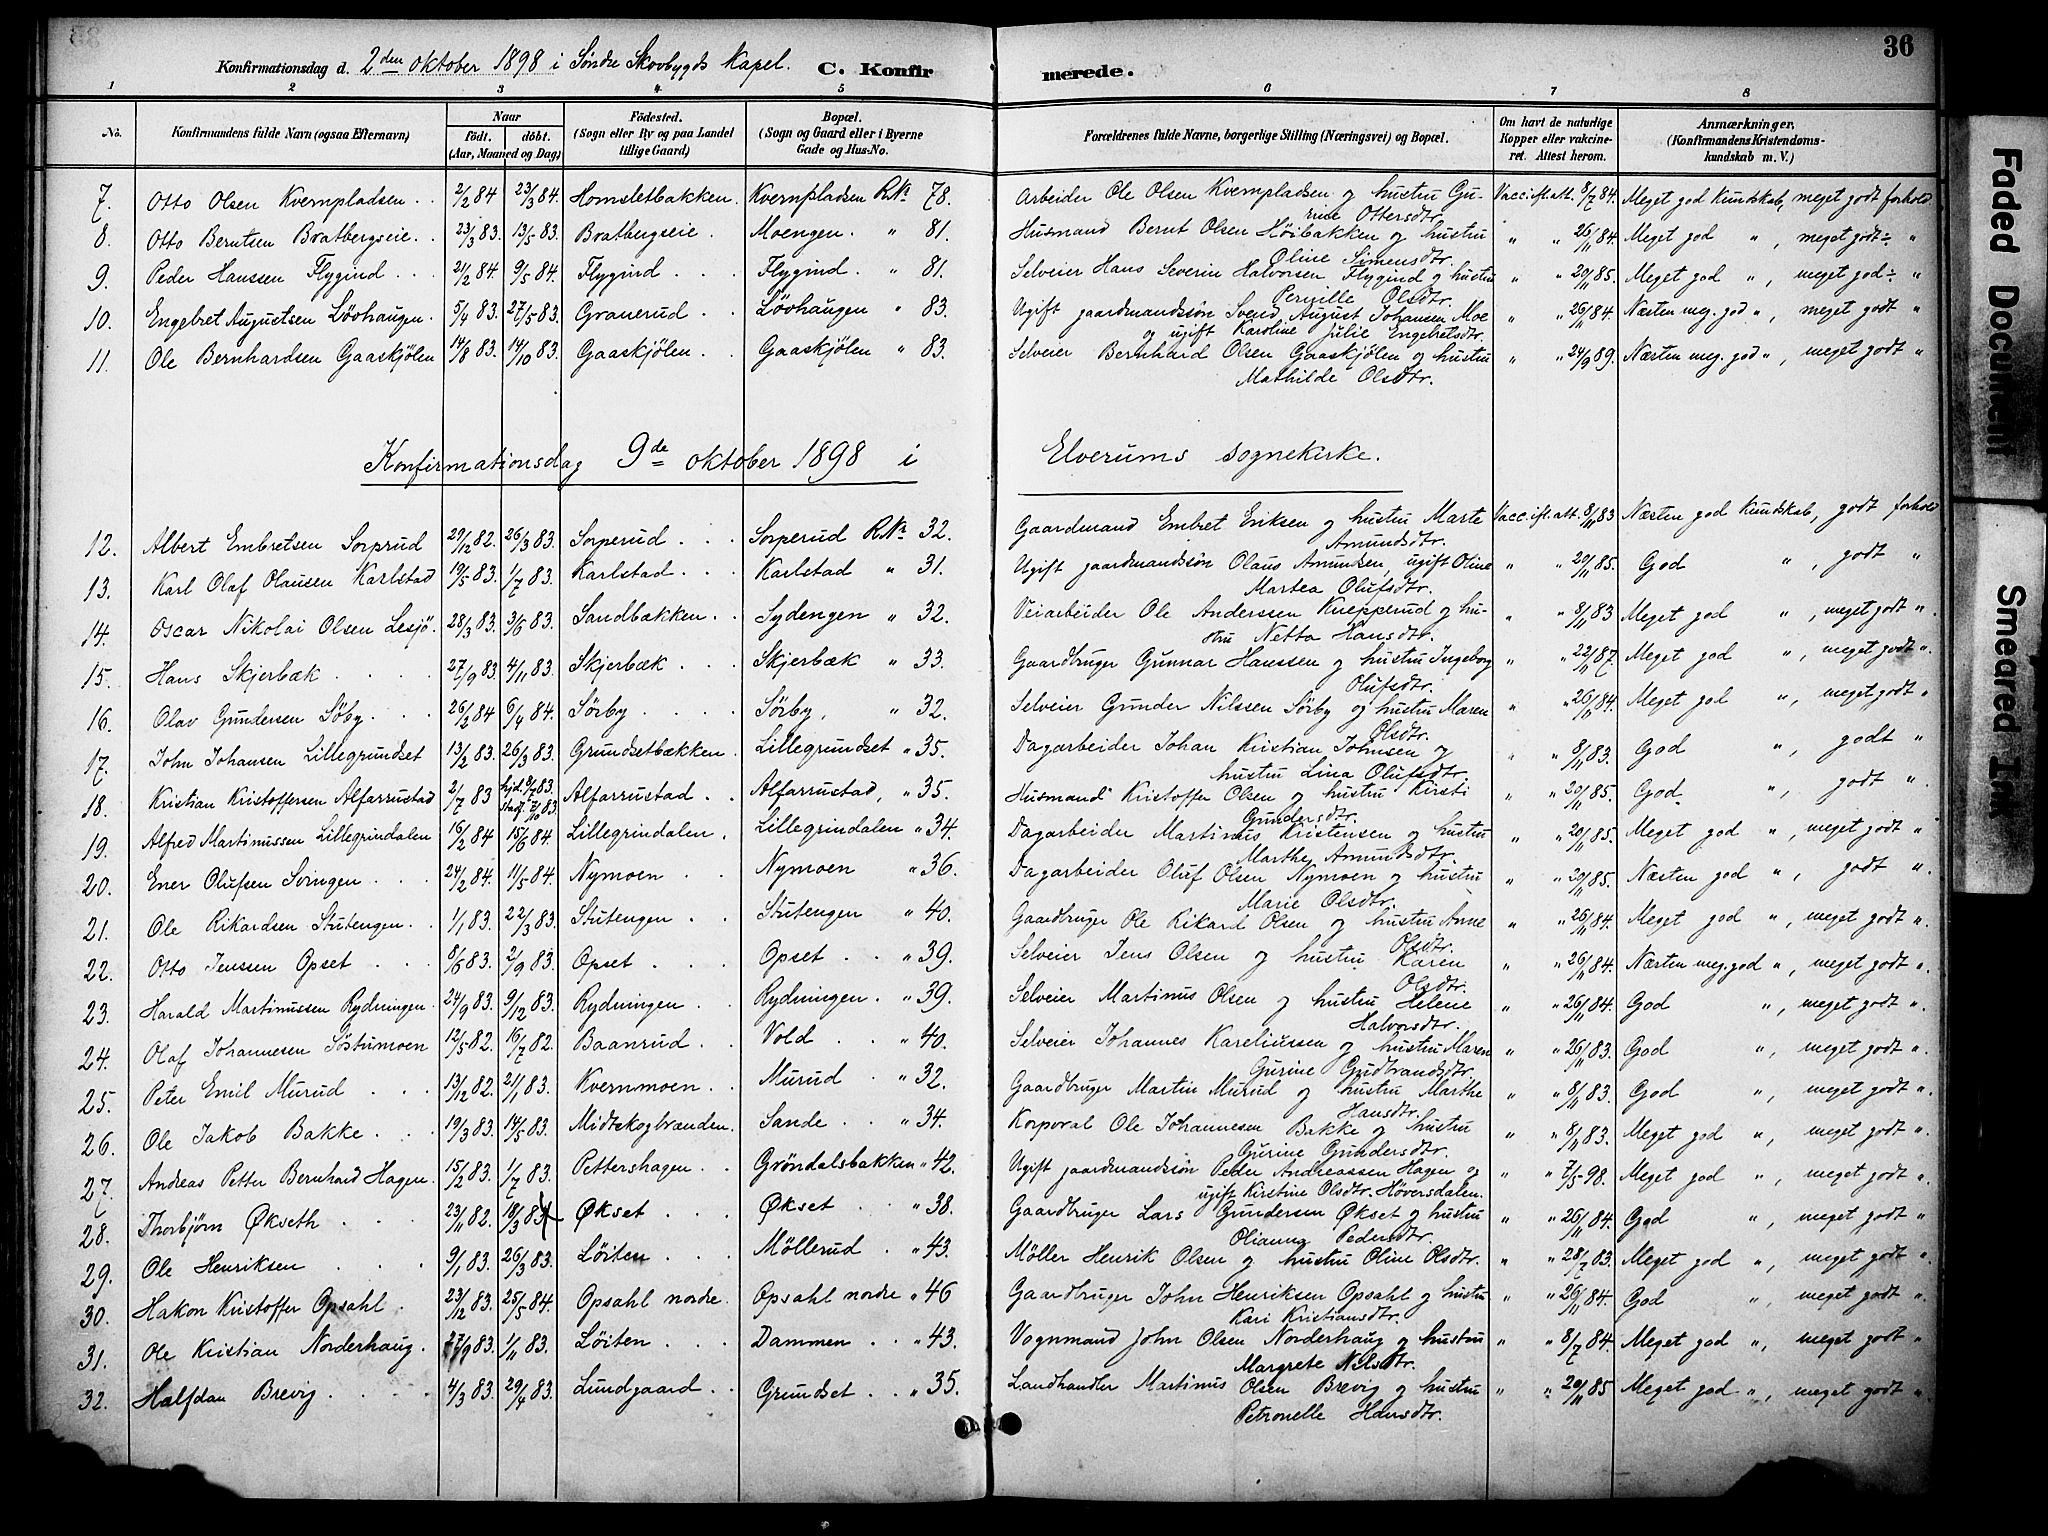 36
Konfirmationsdag d. 2den oktober 1898 i Søndre Skovbygds Kapel. C. Konfirmerede.
1 2 3 4 5 6 7 8
No. Konfirmandens fulde Navn (ogsaa Efternavn) Naar født. døbt. (Aar, Maaned og Dag) Fødested. (Sogn eller By og paa Landet tillige Gaard) Bopæl. (Sogn og Gaard eller i Byerne Gade og Hus-No. Forældrenes fulde Navne, borgerlige Stilling (Næringsvei) og Bopæl. Om havt de naturlige Kopper eller vakcineret. Attest herom. Anmærkninger. (Konfirmandens Kristendomskundskab m. V.)
7. Otto Olsen Kvernpladsen. 2/2 84 23/3 84. Homsletbakken. Kvernpladsen RNr 78. Arbeider Ole Olsen Kvernpladsen og hustru Gurine Ottersdtr. Vacc. ifl. att. 8/7 84. Meget god Kundskab, meget godt forhold
8. Otto Berntsen Bratbergseie. 23/3 83. 13/5 83. Bratbergseie. Moengen. " 81. Husmand Bernt Olsen Høibakken og hustru Oline Simensdtr. " " 26/11 84. Meget god ", meget godt "
9. Peder Hanssen Flygind. 21/2 84 9/5 84. Flygind. Flygind. " 81. Selveier Hans Severin Halvorsen Flygind og hustru Pernille Olsdtr. " " 20/11 85. Meget god ", meget god "
10. Engebret Augustsen Løvhaugen. 5/4 83. 27/5 83. Granerud. Løvhaugen " 83. Ugift gaardmandssøn Svend August Johansen Moe og ugift Karoline Julie Engebretsdtr. " " 26/11 84. Næsten meg. god ", meget godt "
11. Ole Bernhardsen Gaaskjølen 14/8 83. 14/10 83. Gaaskjølen. Gaaskjølen " 83. Selveier Bernhard Olsen Gaaskjølen og hustru Mathilde Olsdtr. " " 24/9 89. Næsten meg. god ", meget godt "
Konfirmationsdag 9de oktober 1898 i Elverums sognekirke.
12. Albert Embretsen Sorprud 29/12 82. 26/3 83. Sorperud. Sorperud RNr 32. Gaardmand Embret Eriksen og hustru Marte Amundsdtr. Vacc. ifl. att. 8/11 83 Næsten god Kundskab, godt forhold
13. Karl Olaf Olausen Karlstad 19/5 83. 1/7 83. Karlstad. Karlstad " 31. Ugift gaardmandssøn Olaus Amundsen, ugift Oline Martea Olufsdtr. " " 20/11 85. God ", godt "
14. Oscar Nikolai Olsen Lesjø. 28/3 83. 3/6 83. Sandbakken. Sydengen " 32. Veiarbeider Ole Anderssen Knepperud og hustru Netta Hansdtr. " " 8/11 83 Meget god ", meget godt ".
15. Hans Skjerbæk 27/9 83 4/11 83. Skjerbæk. Skjerbæk " 33. Gaardbruger Gunnar Hanssen og hustru Ingeborg Olufsdtr. " " 22/11 87. Meget god ", meget godt ".
16. Olav Gundersen Søby. 26/2 84 6/4 84. Sörby. Sörby, " 32. Selveier Gunder Nilssen Sörby og hustru Maren Olsdtr. " " 26/11 84. Meget god ", meget godt "
17. John Johansen Lillegrundset 13/2 83. 26/3 83. Grundsetbækken. Lillegrundset " 35. Dagarbeider Johan Kristian Johnsen og hustru Lina Olufsdtr. " " 8/11 83. God ", godt "
18. Kristian Kristoffersen Alfarrustad 2/7 83 hjd. 8/7 83. stadf. 7/10 83 Alfarrustad. Alfarrustad, " 35. Husmand Kristoffer Olsen og hustru Kirsti Gundersdtr. " " 20/11 85. God ", godt "
19. Alfred Martinussen Lillegrindalen 16/2 84 15/6 84. Lillegrindalen. Lillegrindalen " 34. Dagarbeider Martinus Kristensen og hustru Marthe Amundsdtr. " " 20/11 85. Meget god ", meget godt "
20. Ener Olufsen Svingen. 24/2 84. 11/5 84. Nymoen. Nymoen " 36. Dagarbeider Oluf Olsen Nymoen og hustru Marie Olsdtr. " " 20/11 85. Næsten god ", godt ".
21. Ole Rikardsen Stutengen. 1/1 83. 22/3 83. Stutengen. Stutengen " 40. Gaardbruger Ole Rikard Olsen og hustru Anne Olsdtr. " " 26/11 84. Meget god ", meget godt ".
22. Otto Jenssen Opset. 8/6 83. 2/9 83. Opset. Opset. " 39. Selveier Jens Olsen og hustru Karen Olsdtr. " " 26/11 84. Næsten meg. god ", meget godt ".
23. Harald Martinussen Rydningen. 24/9 83. 9/12 83. Rydningen. Rydningen. " 39. Selveier Martinus Olsen og hustru Helene Halvorsdtr. " " 26/11 84. God ", meget godt ".
24. Olaf Johannesen Søstumoen 12/5 82. 16/7 82. Baanrud. Vold " 40. Selveier Johannes Kareliussen og hustru Maren Gurine Gudbrandsdtr. " " 26/11 83. God ", meget godt ".
25. Peter Emil Murud 13/12 82. 21/1 83. Kvernmoen. Murud " 32. Gaardbruger Martin Murud og hustru Marthe Hansdtr. " " 8/11 83. God ", meget godt ".
26. Ole Jakob Bakke. 19/3 83. 14/5 83. Midtskogbranden. Sande. " 34. Korporal Ole Johannesen Bakke og hustru Gurine Gundersdtr. " " 8/11 83. Meget god ", meget godt ".
27. Andreas Petter Bernhard Hagen. 15/2 83. 1/7 83. Pettershagen. Gröndalsbakken " 42. Ugift gaardmandssøn Peder Andreassen Hagen og ugift Kirstine Olsdtr. Höversdalen. " " 7/5 98. Meget god ", meget godt ".
28. Thorbjörn Økseth 23/11 82. 18/3 83 Økset. Økset " 38. Gaardbruger Lars Gundersen Økset og hustru Olianna Pedersdtr. " " 26/11 84. God ", meget godt "
29. Ole Henriksen 9/1 83. 26/3 83. Løiten. Möllerud. " 43. Möller Henrik Olsen og hustru Oline Olsdtr. " " 28/7 83. Meget god ", meget godt ".
30. Hakon Kristoffer Opsahl. 23/12 83. 25/5 84. Opsahl nordre. Opsahl nordre " 46 Gaardbruger John Henriksen Opsahl og hustru Kari Kristiansdtr. " " 26/11 84. God ", meget godt "
31. Ole Kristian Norderhaug. 27/9 83. 1/11 83. Løiten. Dammen. " 43. Vognmand John Olsen Norderhaug og hustru Margrete Nilsdtr. " " 8/7 84. Meget god ", meget godt "
32. Halfdan Brevig. 4/3 83. 29/4 83. Lundgaard. Grundset. " 35. Landhandler Martinus Olsen Brevig og hustru Petronelle Hansdtr. " " 20/11 85 Meget god ", meget godt ".
Faded Document
Smeared Ink